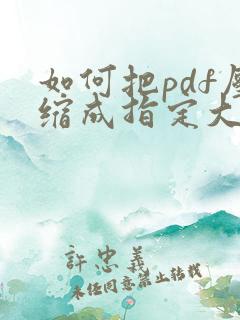 如何把pdf压
缩成指定大
許忠義
未经同意禁止转载